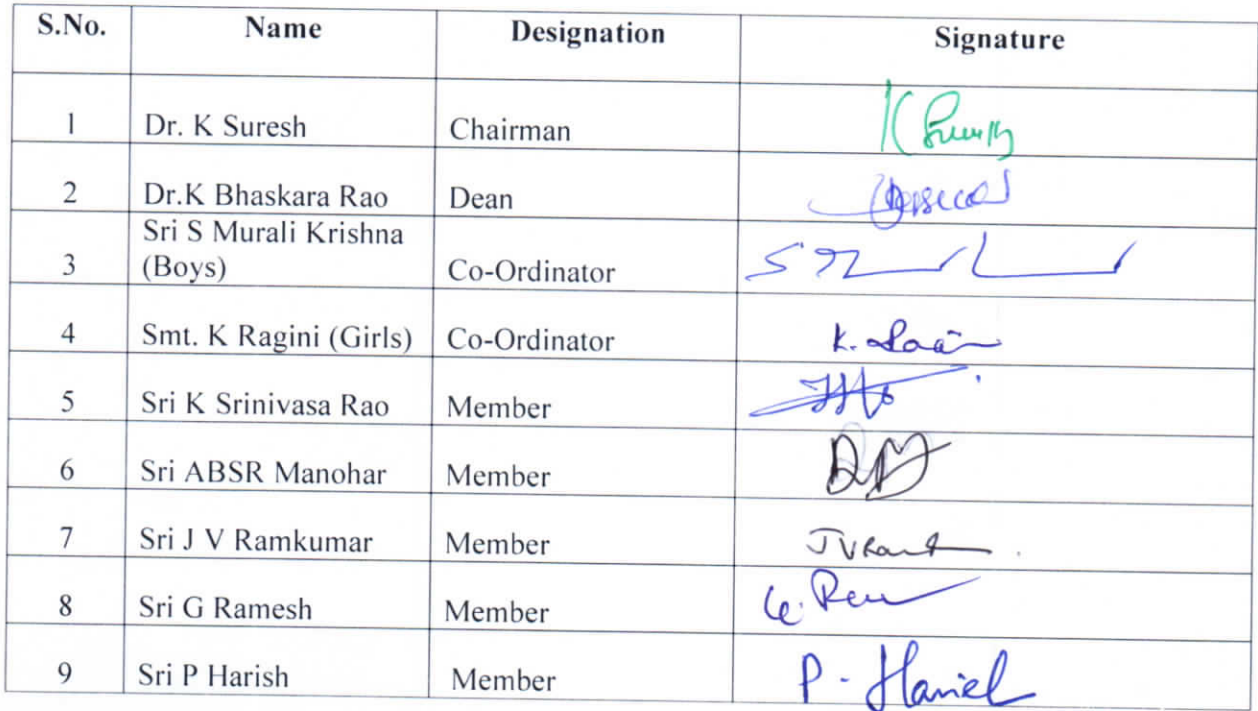 S.No. Name Designation Signature
1 Dr. K Suresh Chairman
2 Dr.K Bhaskara Rao Dean
Sri S Murali Krishna
3 (Boys) Co-Ordinator
4 Smt. K Ragini (Girls) Co-Ordinator
5 Sri K Srinivasa Rao Member
6 Sri ABSR Manohar Member
7 Sri J V Ramkumar Member
8 Sri G Ramesh Member
9 Sri P Harish Member